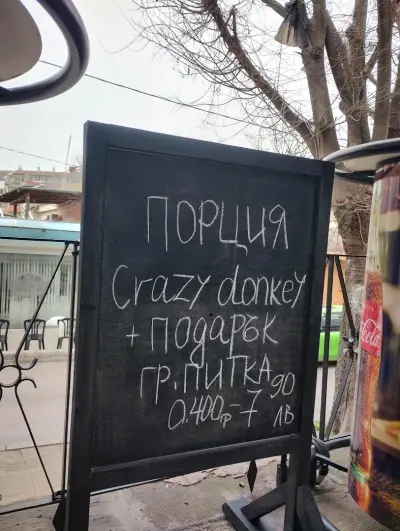 ПОРЦИЯ
Crazy donkey
+ ПОДАРЪК
ГР. ПИТКА
0.400гр – 7 90 ЛВ
Coca